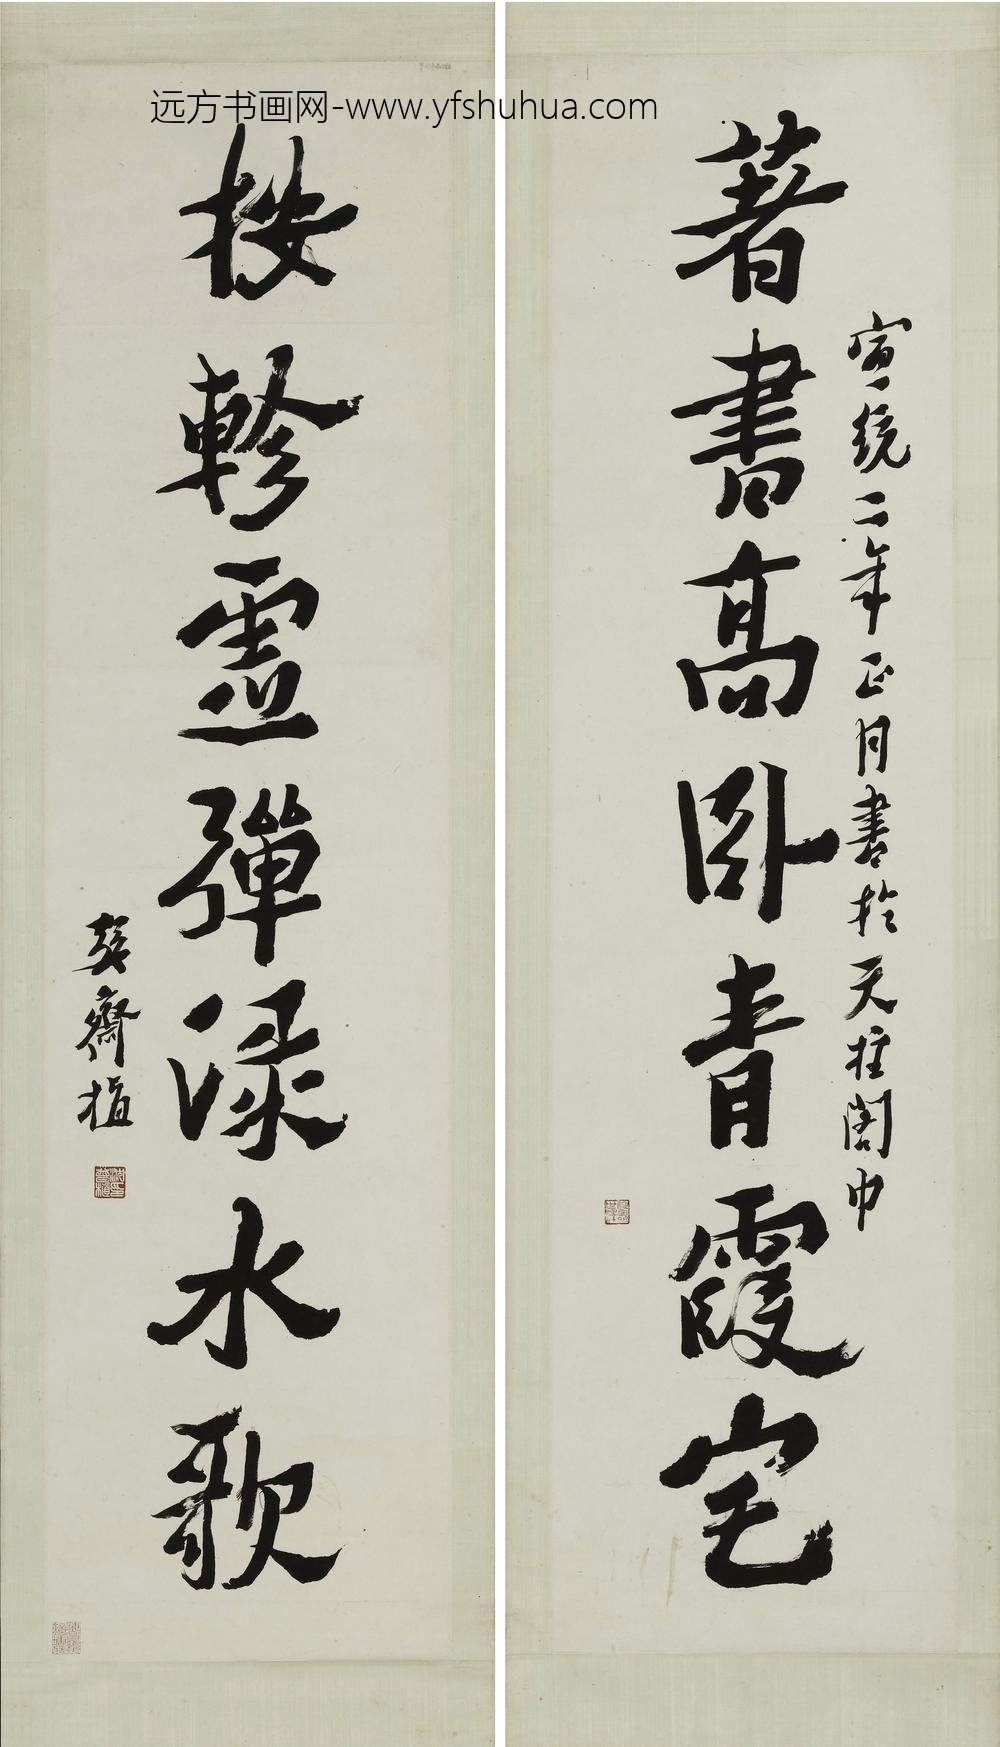 远方书画网-www.yfshuhua.com
宣統二年正月書於天柱閣中
著書高卧青霞宅
按軫靈彈渌水歌
植